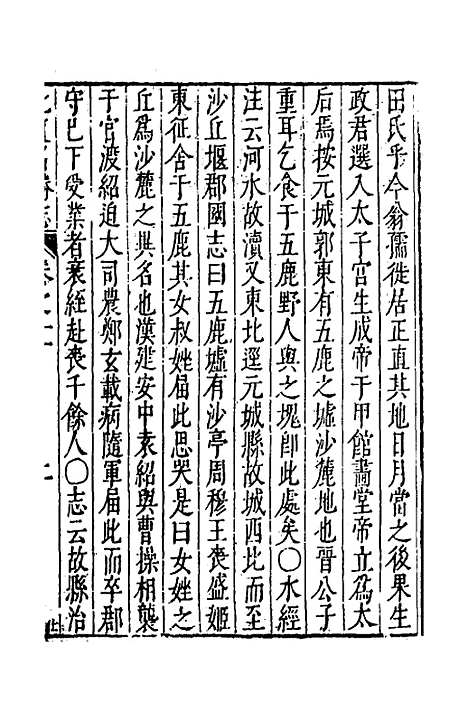 田氏乎今翁孺徙居正直其地日月當之後果生
政君選入太子宮生成帝于甲館畵堂帝立爲太
后焉按元城郭東有五鹿之墟沙麓地也晉公子
重耳乞食于五鹿野人與之塊卽此處矣○水經
注云河水故瀆又東北逕元城縣故城西北而至
沙丘堰郡國志曰五鹿墟有沙亭周穆王喪盛姬
東征舍于五鹿其女叔姓届此思哭是曰女姓之
丘爲沙麓之異名也漢建安中袁紹與曹操相襲
于官渡紹迫大司農鄭玄載病隨軍届此而卒郡
守已下受業者衰絰赴喪千餘人○志云故縣治